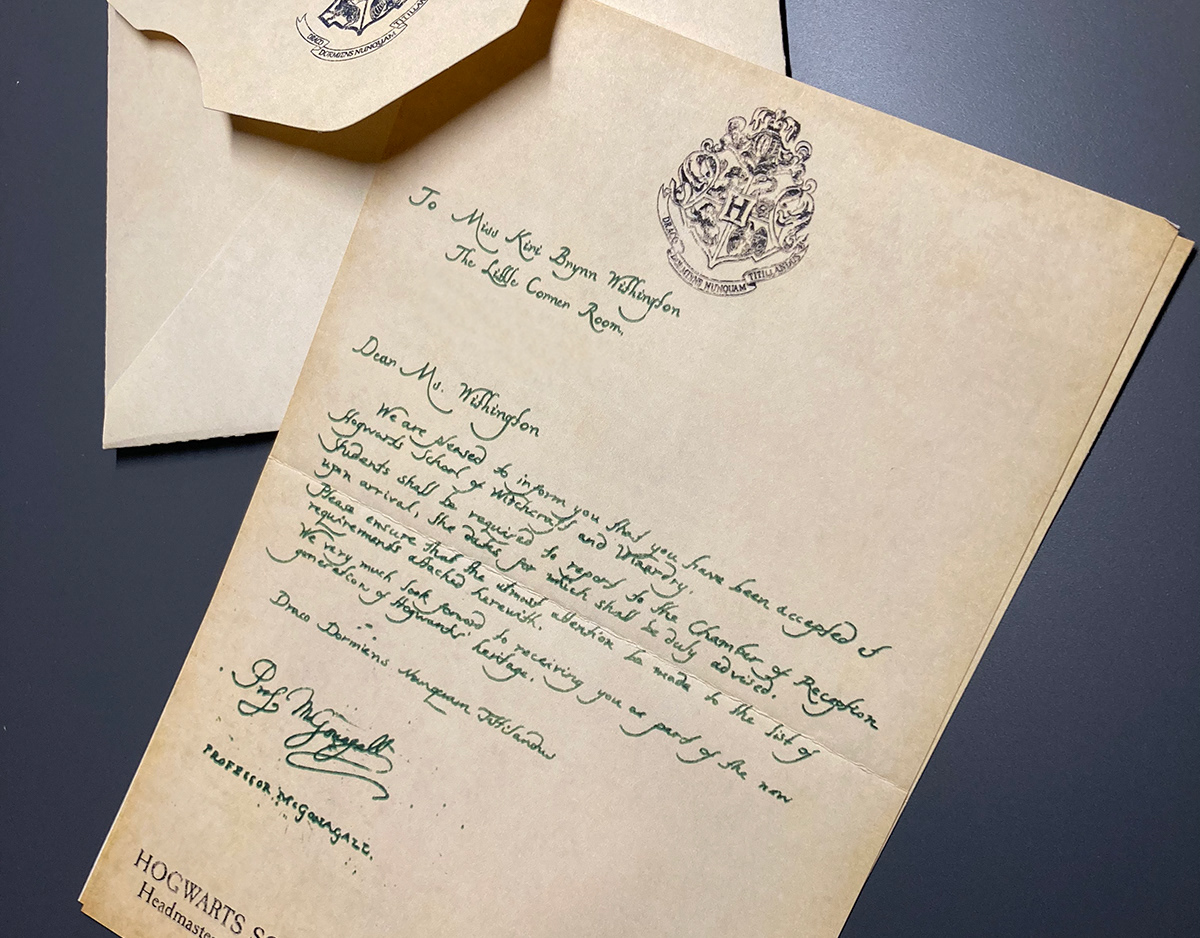 DRACO DORMIENS NUNQUAM TITILLAN
H
DRACO DORMIENS NUNQUAM TITILLANDUS
To Miss Kiri Brynn Withington
The Little Corner Room,
Dear Ms. Withington
We are pleased to inform you that you have been accepted at
Hogwarts School of Witchcraft and Wizardry.
Students shall be required to report to the Chamber of Reception
upon arrival, the dates for which shall be duly advised.
Please ensure that the utmost attention be made to the list of
requirements attached herewith.
We very much look forward to receiving you as part of the new
generation of Hogwarts' heritage.
Draco Dormiens Nunquam Titillandus
Prof. McGonagall
PROFESSOR McGONAGALL.
HOGWARTS SC
Headmaster